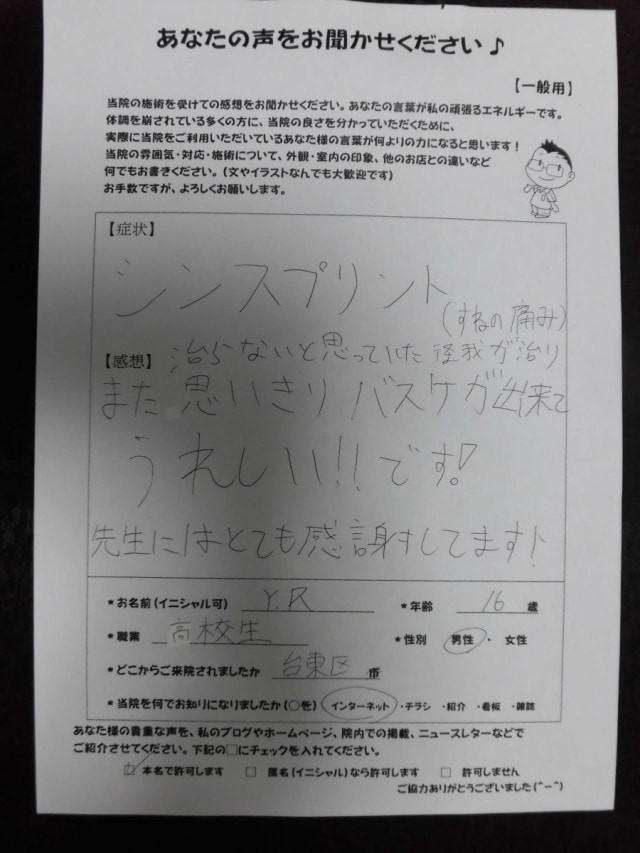 あなたの声をお聞かせください♪
【一般用】
当院の施術を受けての感想をお聞かせください。あなたの言葉が私の頑張るエネルギーです。
体調を崩されている多くの方に、当院の良さを分かっていただくために、
実際に当院をご利用いただいているあなた様の言葉が何よりの力になると思います！
当院の雰囲気・対応・施術について、外観・室内の印象、他のお店との違いなど
何でもお書きください。（文やイラストなんでも大歓迎です）
お手数ですが、よろしくお願いします。
【症状】
シンスプリント
(すねの痛み)
【感想】 治らないと思っていた怪我が治り
また思いきりバスケが出来て
うれしい!!です!
先生にはとても感謝してます!
*お名前（イニシャル可） Y.R *年齢 16 歳
*職業 高校生 *性別 男性 ・ 女性
*どこからご来院されましたか 台東区 市
*当院を何でお知りになりましたか（○を） インターネット ・チラシ ・紹介 ・看板 ・雑誌
あなた様の貴重な声を、私のブログやホームページ、院内での掲載、ニュースレターなどで
ご紹介させてください。下記の□にチェックを入れてください。
☑ 本名で許可します □ 匿名（イニシャル）なら許可します □ 許可しません
ご協力ありがとうございました(^-^)